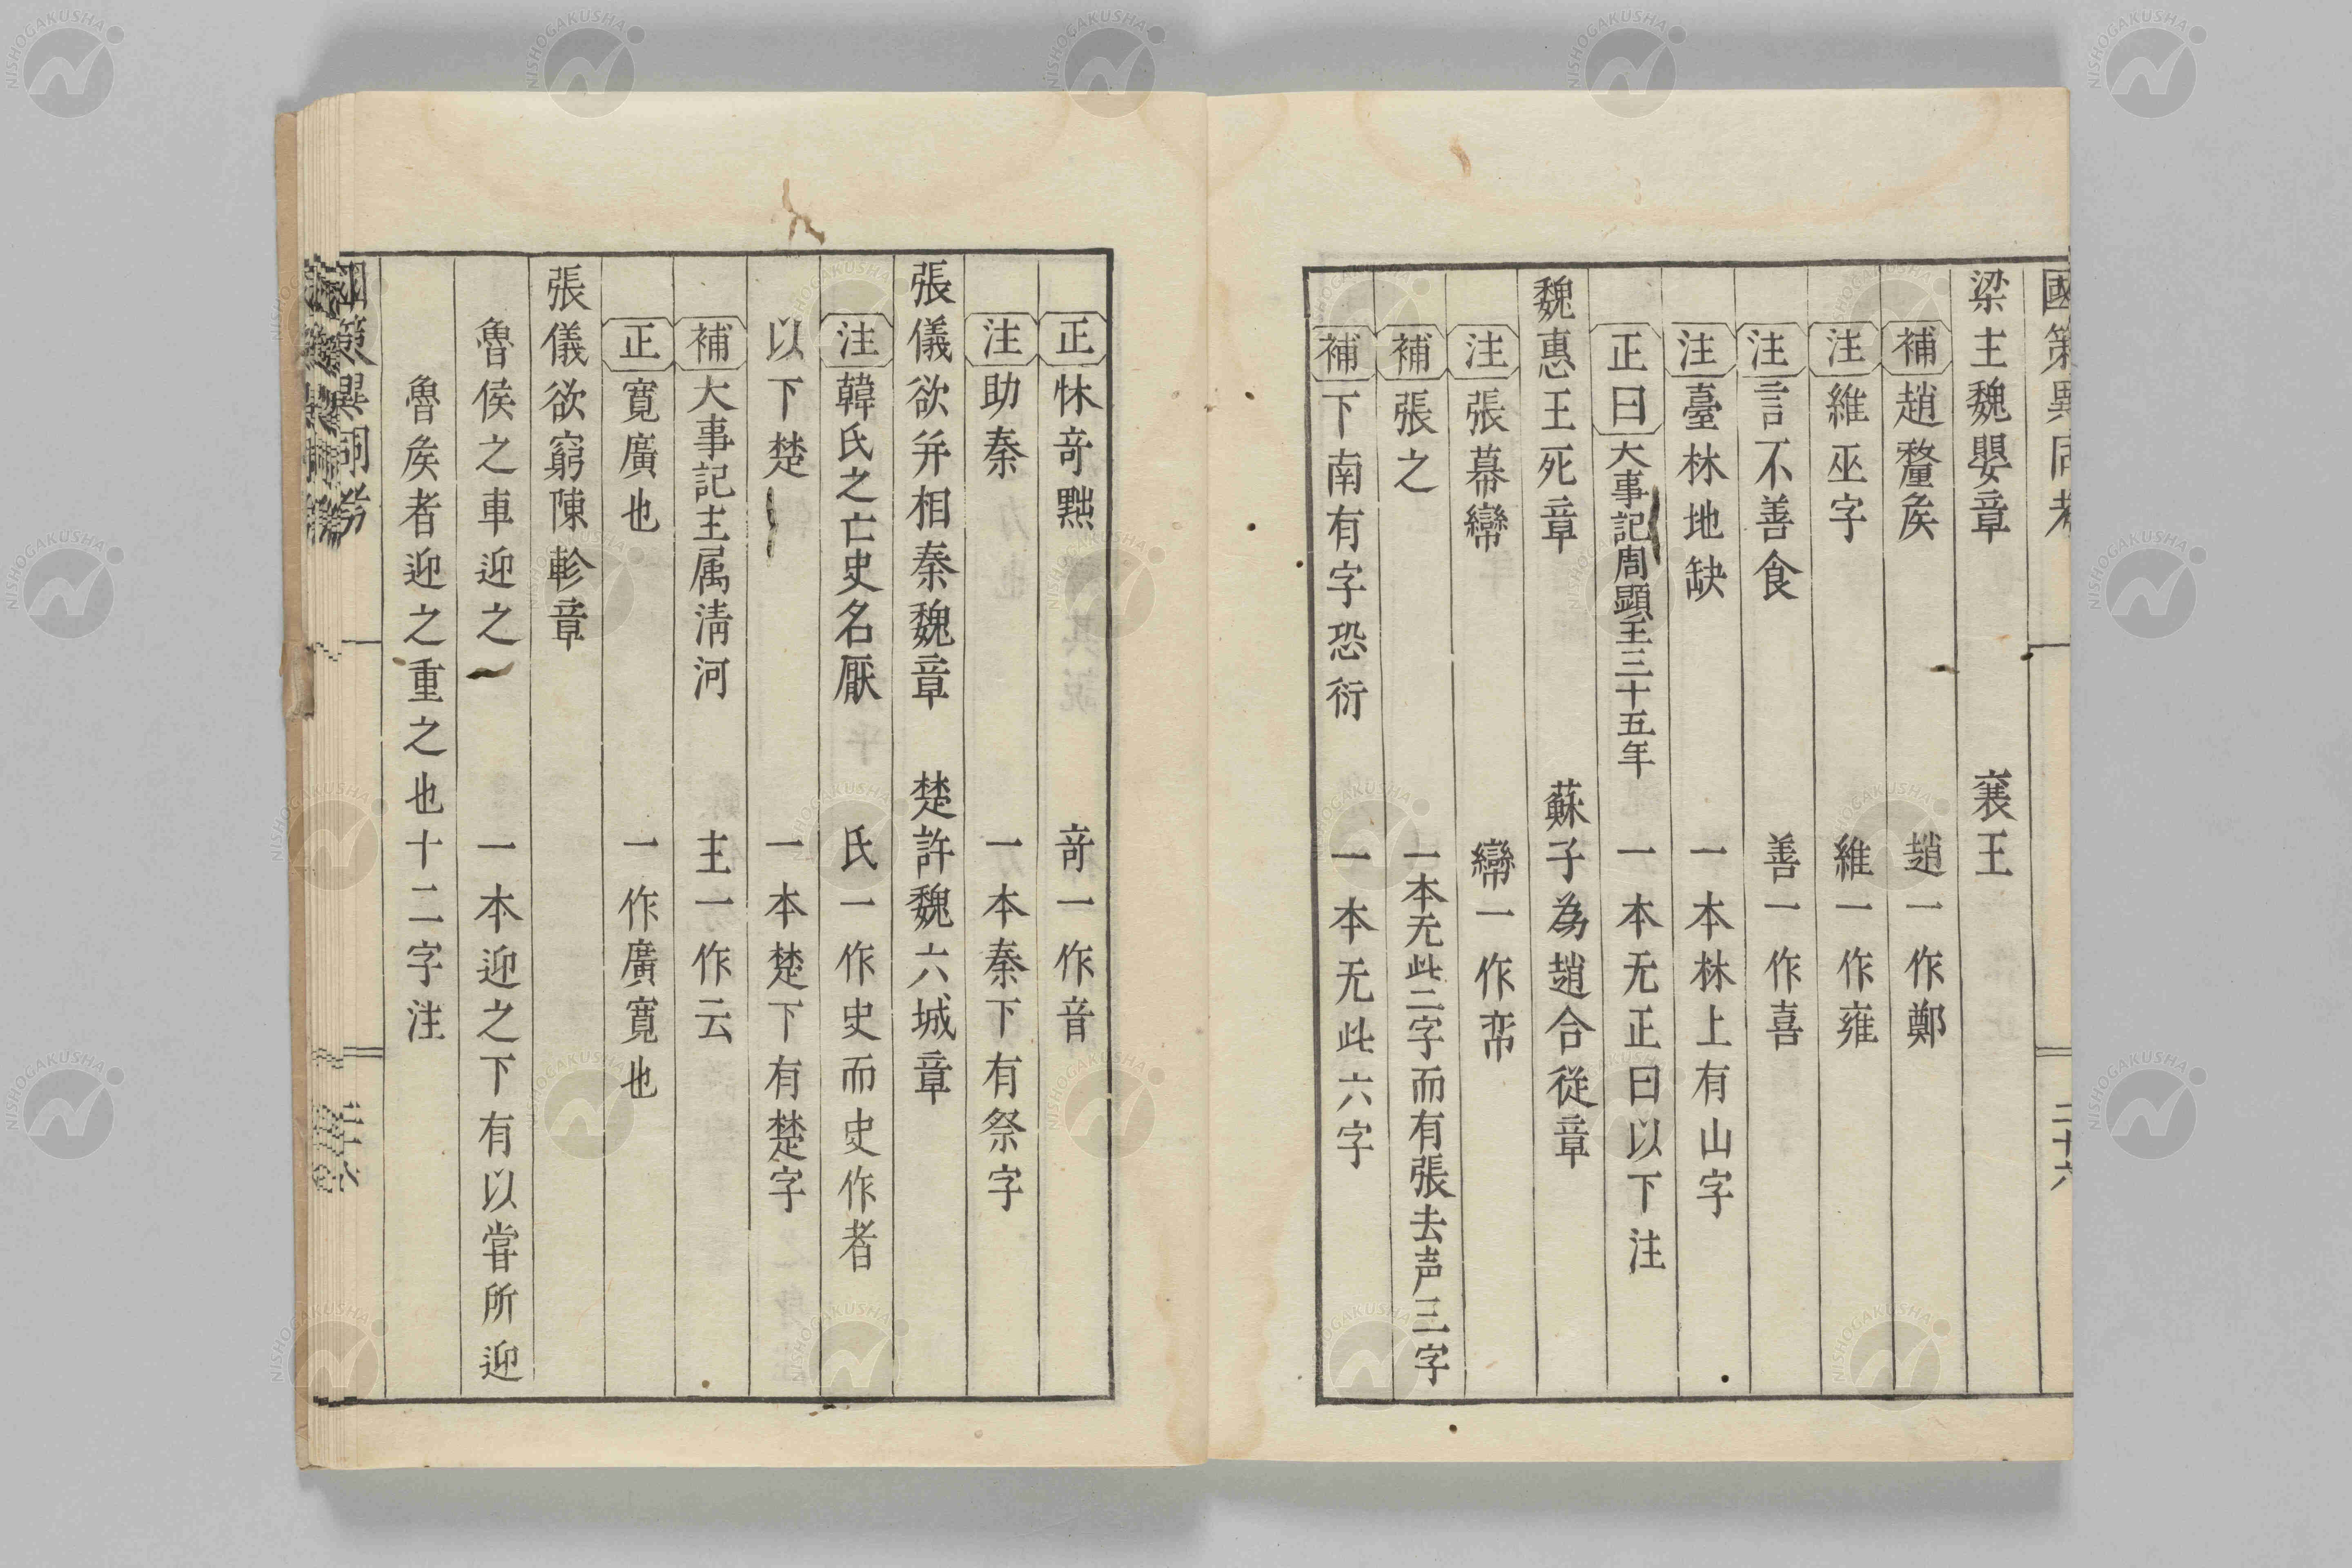 國策異同考 二十六
梁主魏嬰章 襄王
補 趙釐矦 趙一作鄭
注 維巫字 維一作雍
注 言不善食 善一作喜
注 臺林地缺 一本林上有山字
正曰 大事記周顯王三十五年 一本无正曰以下注
魏惠王死章 蘇子為趙合從章
注 張幕
補 張之 一本无此二字而有張去声三字
補 下南有字恐衍 一本无此六字
正 怵竒黜 竒一作音
注 助秦 一本秦下有祭字
張儀欲并相秦魏章 楚許魏六城章
注 韓氏之亡史名厭 氏一作史而史作者
以下楚 一本楚下有楚字
補 大事記主属清河 主一作云
正 寛廣也 一作廣寛也
張儀欲窮陳軫章
魯侯之車迎之 一本迎之下有以甞所迎
魯矦者迎之重之也十二字注
國策異同考
NISHOGAKUSHA